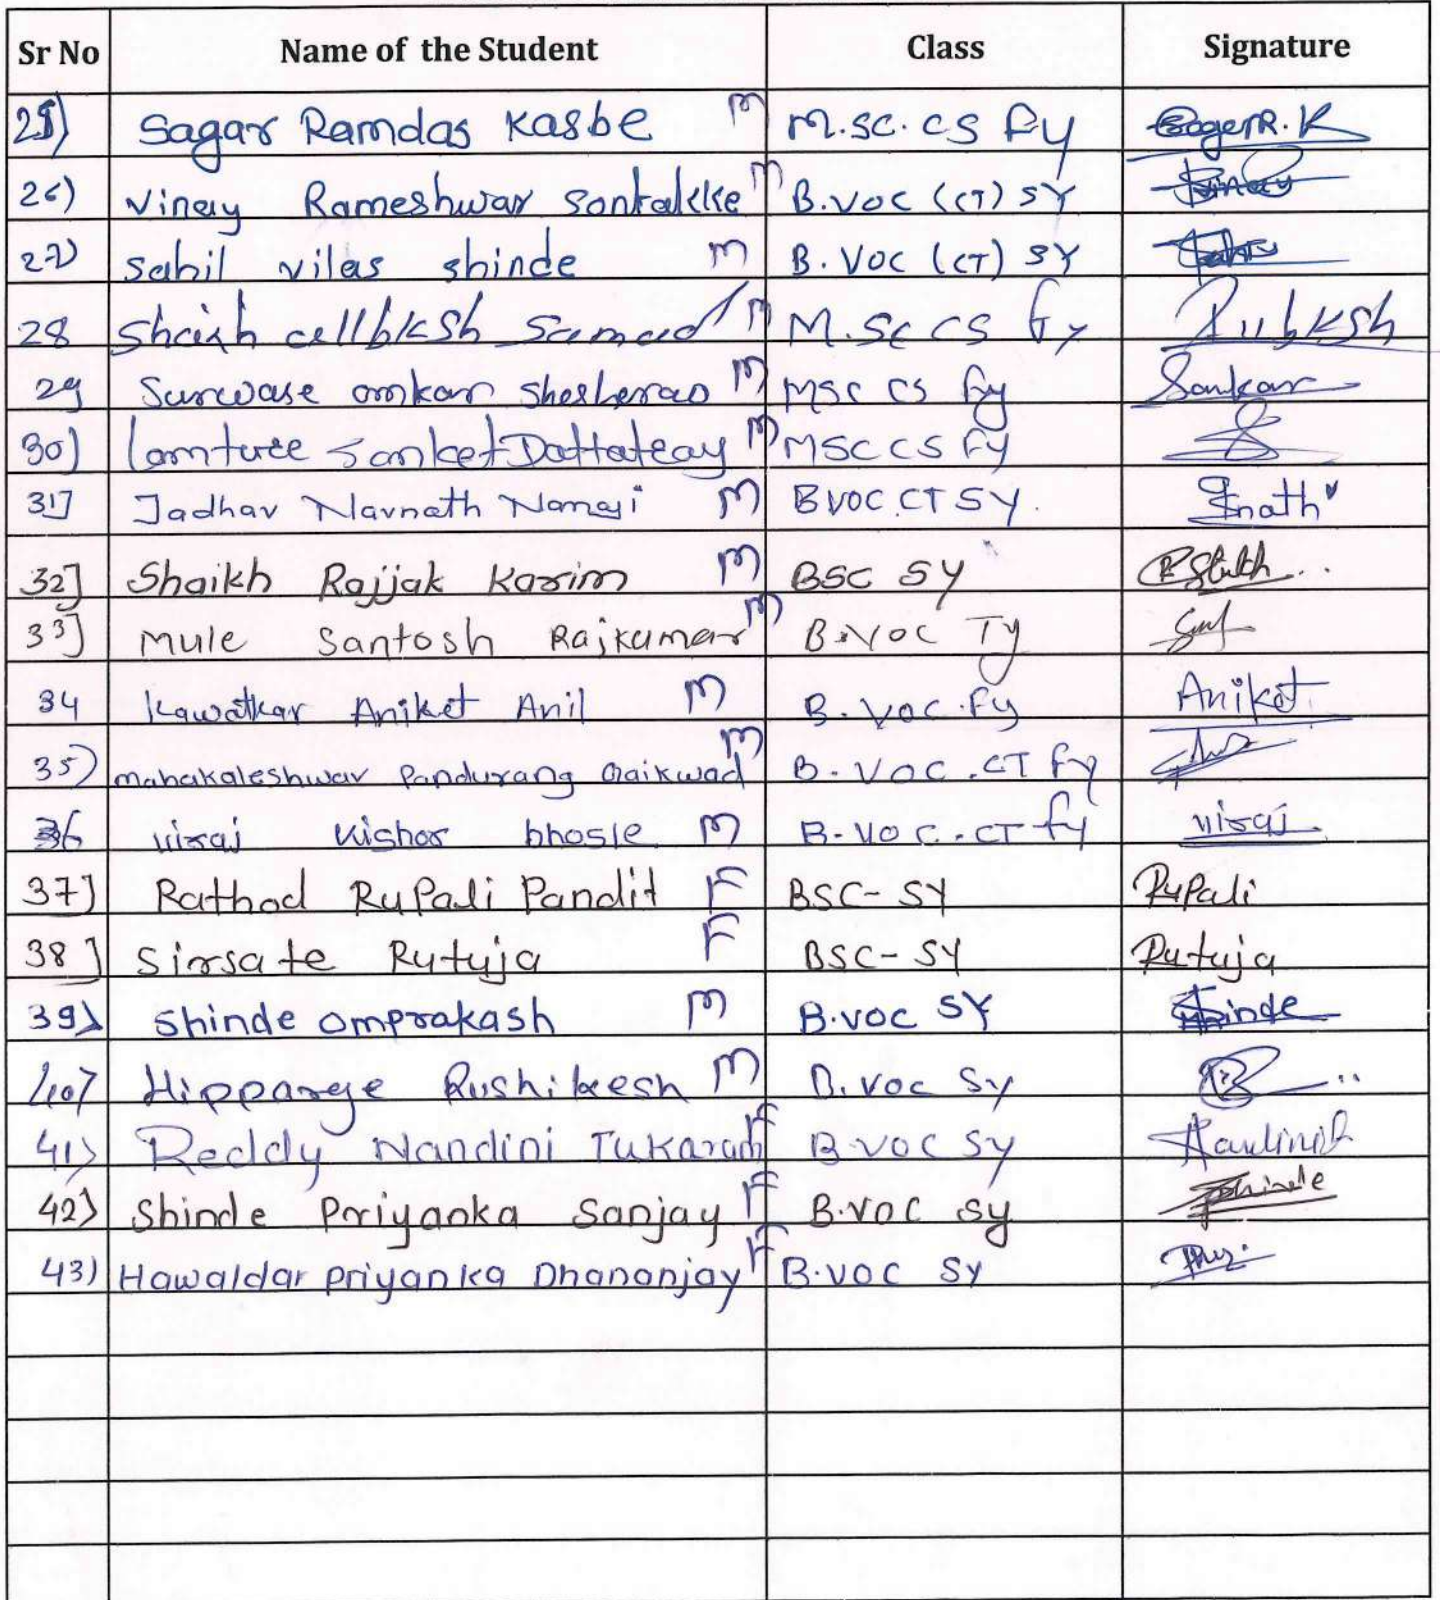 Sr No Name of the Student Class Signature
25) Sagar Ramdas Kasbe M M.SC. CS Fy SagarR.K
26) Vinay Rameshwar Sontakke M B.VOC (CT) SY Vinay
27) Sahil vilas shinde M B.VOC (CT) SY
28 Shaikh allbksh Samad M M.Sc CS Fy
29 Surwase omkar Shesherao M MSC CS Fy Somkar
30) Lomture Sanket Dattatray M MSC CS Fy
31] Jadhav Navnath Nanaji M BVOC.CT SY.
32] Shaikh Rajjak Karim M BSC SY
33] Mule Santosh Rajkumar M B.VOC Ty
34 Kawatkar Aniket Anil M B.VOC.Fy Aniket
35) mahakaleshwar Pandurang Gaikwad M B.VOC.CT Fy
36 viraj kishor bhosle M B-VOC.CT fy viraj
37] Rathod RuPali Pandit F BSC-SY RuPali
38] Sirsate Rutuja F BSC-SY Rutuja
39) Shinde omprakash M B.VOC SY Shinde
40) Hipparge Rushikesh M B.VOC Sy
41) Reddy Nandini Tukaram F B.VOC Sy
42) Shinde Priyanka Sanjay F B.VOC Sy Shinde
43) Hawaldar Priyanka Dhananjay F B.VOC SY